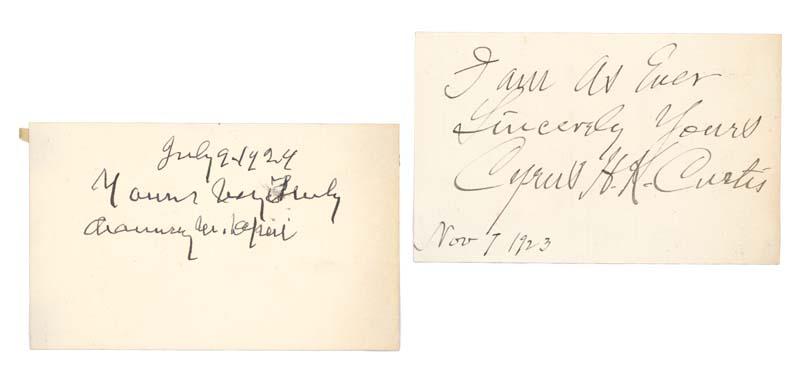 July 9-1924
Yours Very Truly
Chauncey M. Depew
I am As Ever
Sincerely Yours
Cyrus H. K. Curtis
Nov 7 1923